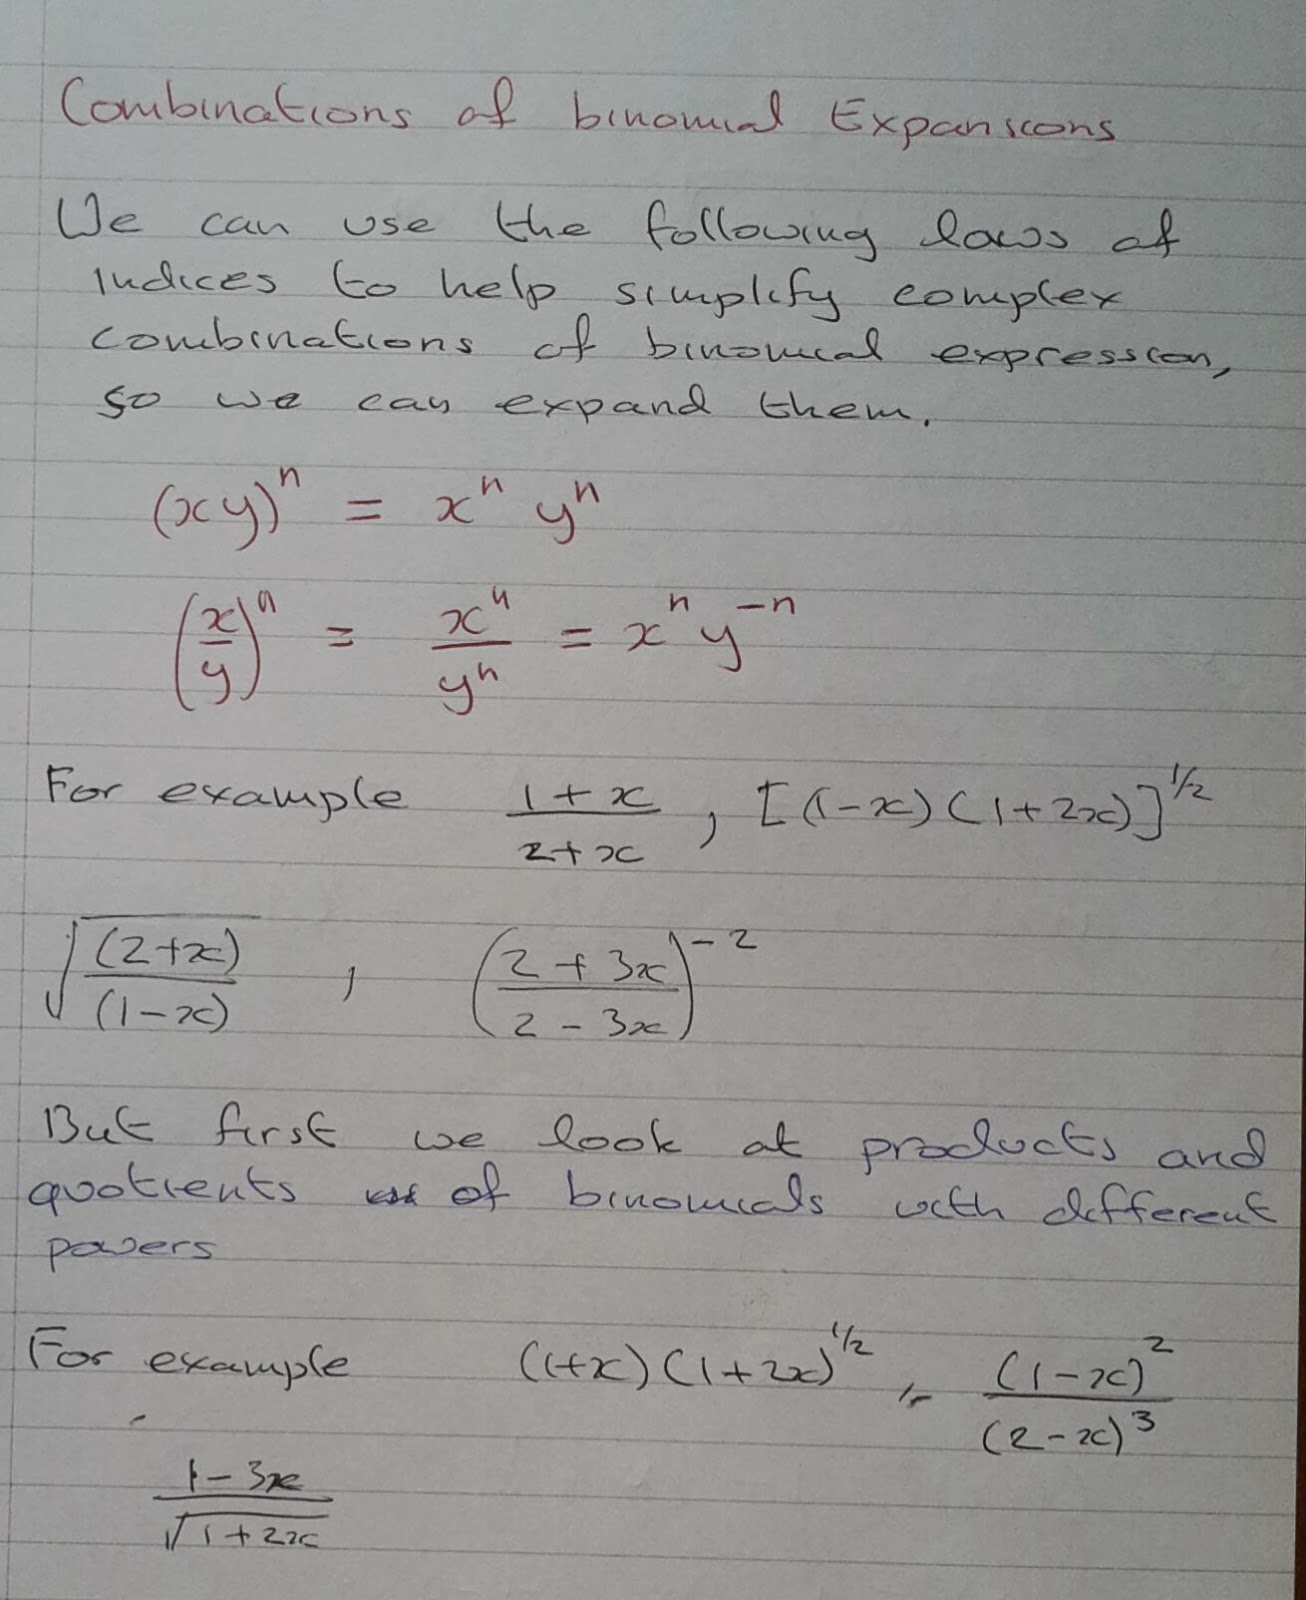 Combinations of binomial Expansions
We can use the following laws of
indices to help simplify complex
combinations of binomial expression,
so we can expand them.
(xy)^n = x^n y^n
(x/y)^n = x^n/y^n = x^n y^-n
For example (1+x)/(2+x), [(1-x)(1+2x)]^1/2
√((2+x)/(1-x)), ((2+3x)/(2-3x))^-2
But first we look at products and
quotients of binomials with different
powers
For example (1+x)(1+2x)^1/2, (1-x)^2/(2-x)^3
(1-3x)/√(1+2x)